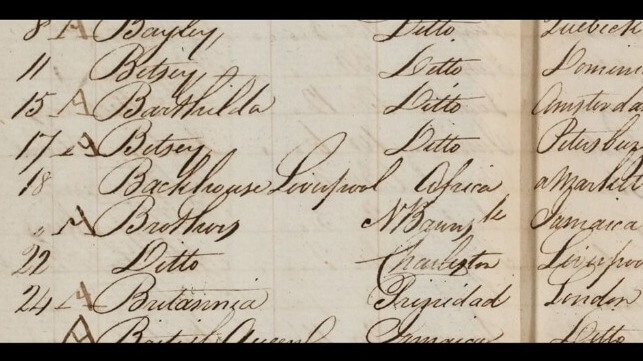 8 A Bayley Ditto Quebeck
11 Betsey Ditto Domini
15 A Barthilda Ditto Amsterda
17 A Betsey Ditto Petersburg
18 Backhouse Liverpool Africa a Markitt
" A Brothers Jamaica
22 Ditto Charleston Liverpoo
24 A Britannia Trinidad London
A British Queen Jamaica Ditto